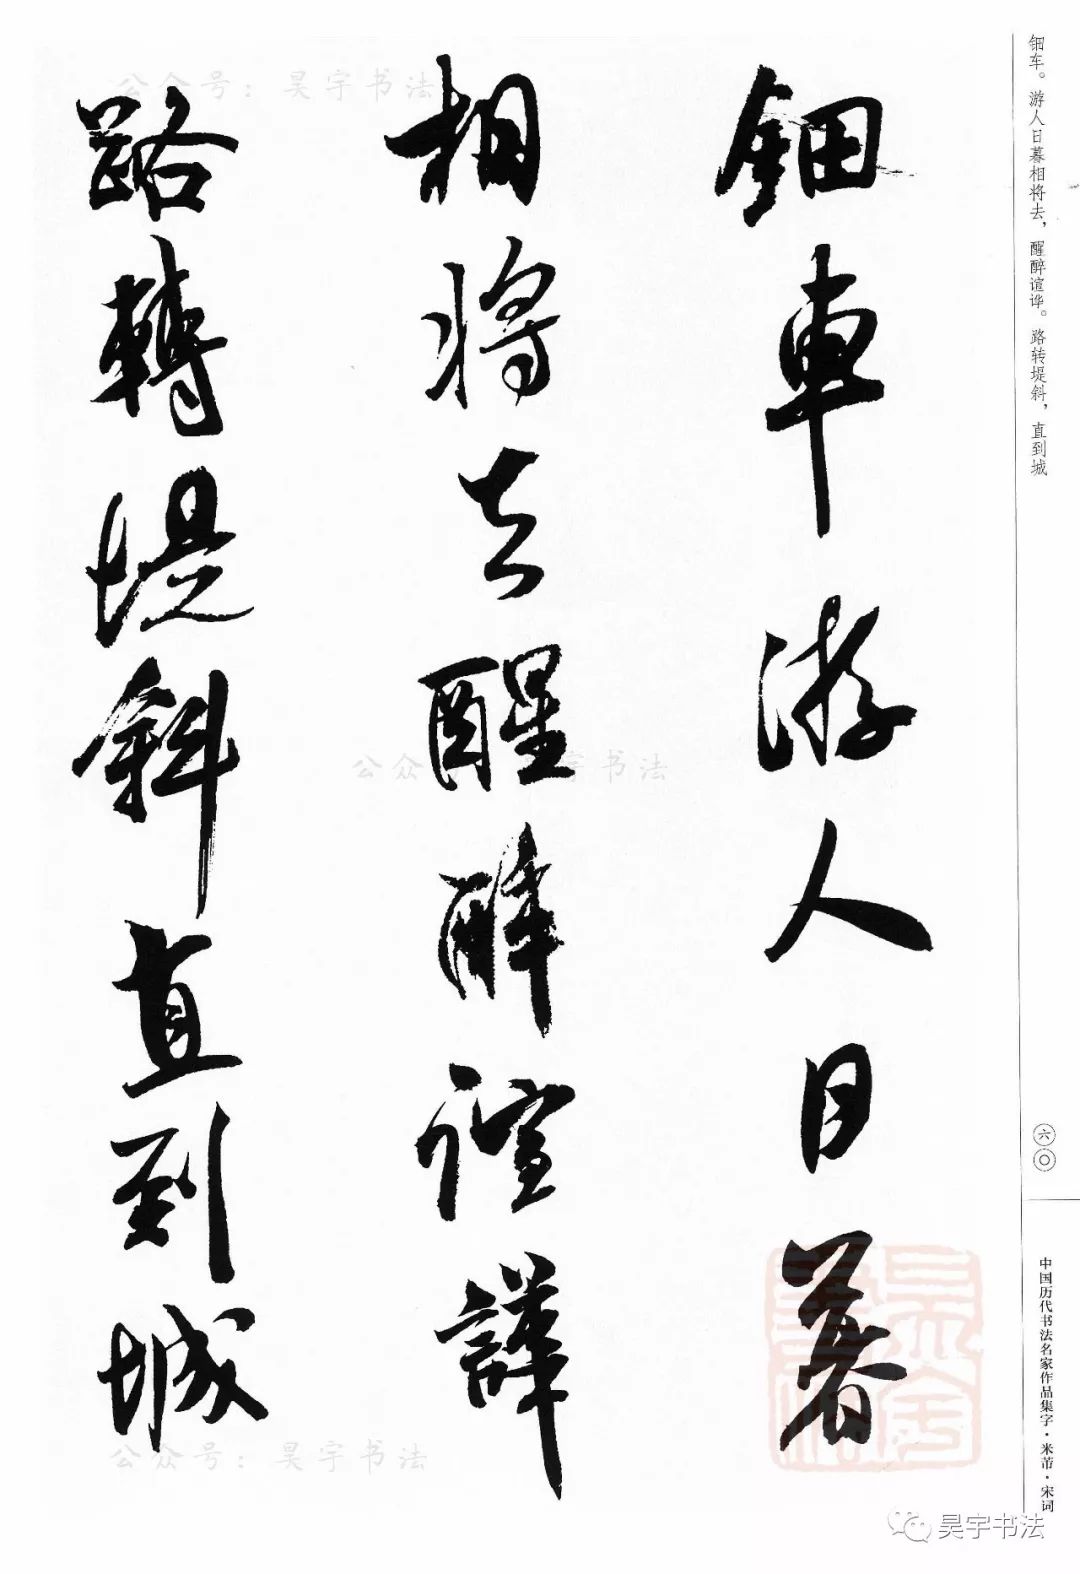 钿车。游人日暮相将去，醒醉谊哗。路转堤斜，直到城
鈿車游人日暮
相將去醒醉諠譁
路轉堤斜直到城
六〇
中国历代书法名家作品集字·米芾·宋词
公众号：昊宇书法
公众号：昊宇书法
公众号：昊宇书法
昊宇书法